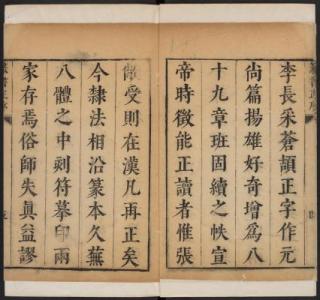 李長采蒼頡正字作元
尚篇揚雄好奇增為八
十九章班固續之帙宣
帝時徵能正讀者惟張
敞受則在漢凡再正矣
今隸法相沿篆本久蕪
八體之中刻符摹印兩
家存焉俗師失真益謬